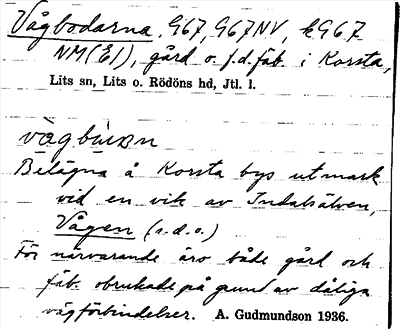 Vågbodarna, G67, G67NV, k G67
NM(E1), gård o. f.d. fäb. i Korsta,
Lits sn, Lits o. Rödöns hd, Jtl. l.
Belägna å Korsta bys utmark
vid en vik av Indalsälven,
Vågen (s.d.o.)
För närvarande äro både gård och
fäb. obrukade på grund av dåliga
vägförbindelser. A. Gudmundson 1936.